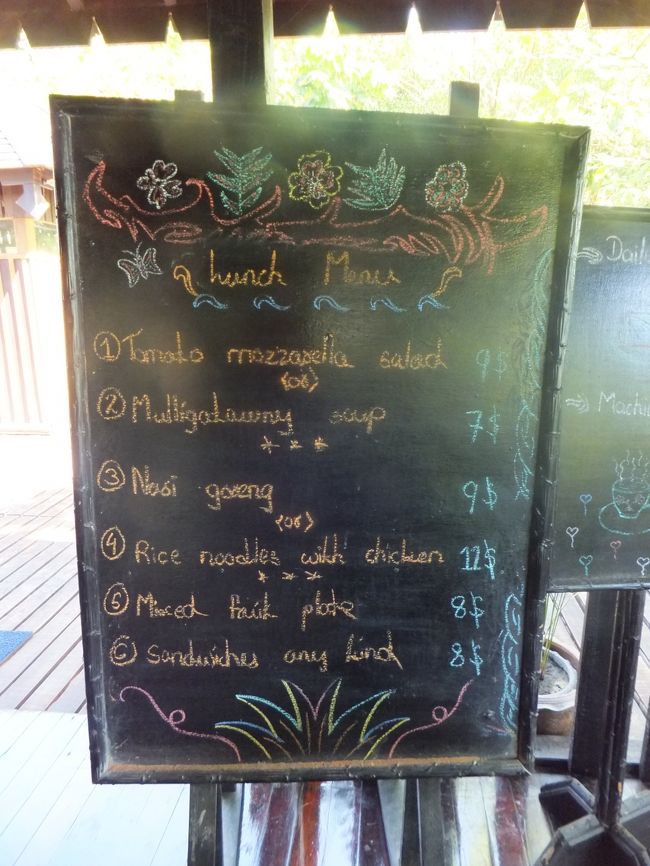 Lunch Menu
① Tomato mozzarella salad 9$
(or)
② Mulligatawny soup 7$
* * *
③ Nasi goreng 9$
(or)
④ Rice noodles with chicken 12$
* * *
⑤ Mixed fruit plate 8$
⑥ Sandwiches any kind 8$